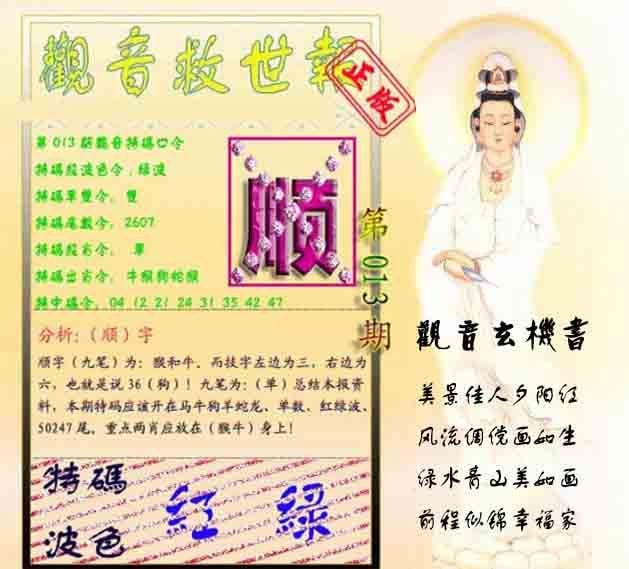 觀音救世報
正版
第013期觀音特碼口令
特碼段波色令:綠波
特碼單雙令: 雙
特碼尾數令: 2607
特碼段肖令: 單
特碼出肖令: 牛猴狗蛇猴
特中碼令: 04 12 21 24 31 35 42 47
順
第013期
分析:(順)字
順字(九笔)为: 猴和牛. 而技字左边为三, 右边为
六, 也就是说 36(狗)! 九笔为:(单)总结本报资
料, 本期特码应该开在马牛狗羊蛇龙、单数、红绿波、
50247尾, 重点两肖应放在(猴牛)身上!
特碼
波色
紅 綠
觀音玄機書
美景佳人夕阳红
风流倜傥画如生
绿水青山美如画
前程似锦幸福家